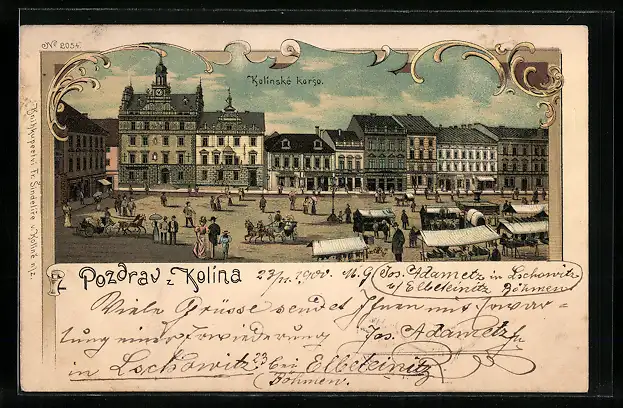 No 2054.
Kolínské korso.
Knihkupectví Fr. Šindeláře v Kolíně n/L.
Pozdrav z Kolína
1900. Jos. Adametz in Lschowitz
b/ Elbeteinitz Böhmen
Viele Grüsse sendet Ihnen mit Erwar-
tung einer Erwiederung Jos. Adametz
in Lschowitz bei Elbeteinitz
Böhmen.